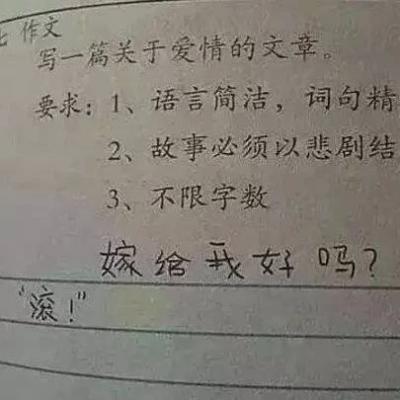 七 作文
写一篇关于爱情的文章。
要求：1、语言简洁，词句精
2、故事必须以悲剧结
3、不限字数
嫁给我好吗？
“滚！”